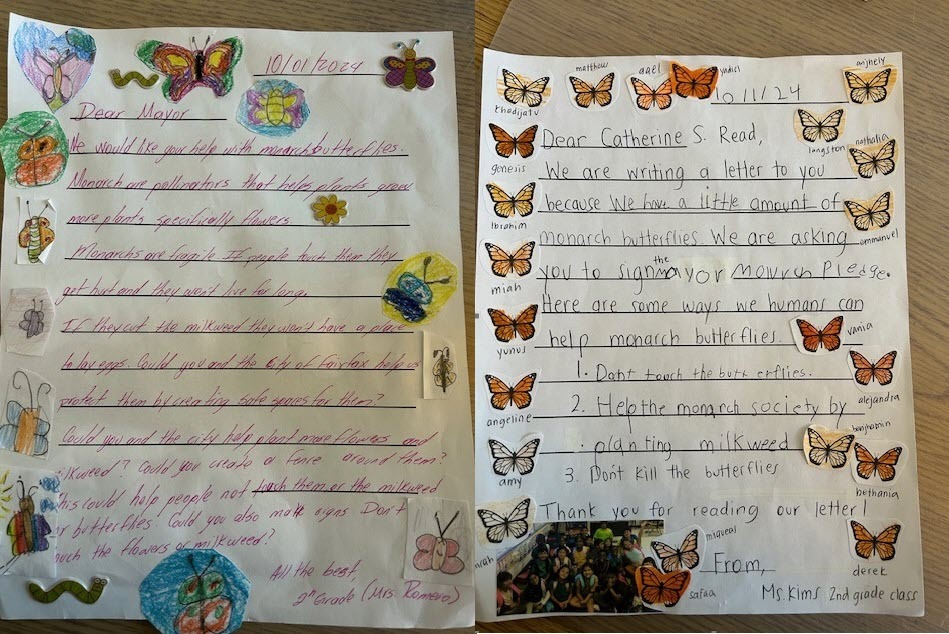 10/01/2024
Dear Mayor
We would like your help with monarch butterflies.
Monarch are pollinators that helps plants grow
more plants specifically flowers.
Monarchs are fragile If people touch them they
get hurt and they won't live for long.
If they cut the milkweed they won't have a place
to lay eggs. Could you and the city of Fairfax help us
protect them by creating safe spaces for them?
Could you and the city help plant more flowers and
ilkweed? Could you create a fence around them?
his could help people not touch them or the milkweed
or butterflies. Could you also make signs Don't
uch the flowers or milkweed?
All the best,
2nd Grade (Mrs. Romero)
khadijatu
matthew
aael
yadiel
anjhely
10/11/24
genesis
Dear Catherine S. Read,
langston
nathalia
We are writing a letter to you
ibrahim
because We have a little amount of
emmanuel
monarch butterflies We are asking
miah
you to sign the mayor Mowrch Pledge.
Here are some ways we humans can
yunus
help monarch butterflies.
vania
1. Don't touch the butterflies.
angeline
alejandra
2. Help the monarch society by
benjhamin
planting milkweed
amy
3. Don't kill the butterflies
bethania
Thank you for reading our letter!
miqueal
From,
derek
safaa
Ms. Kims 2nd grade class